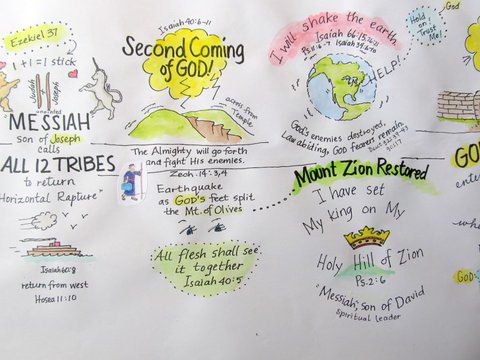 Ezekiel 37
1+1=1 stick
Judah
Joseph
anointed
MESSIAH
son of Joseph
calls
ALL 12 TRIBES
to return
"Horizontal Rapture"
Isaiah 60:8
return from west
Hosea 11:10
Isaiah 40:6-11
Second Coming
of GOD!
across from
Temple
The Almighty will go forth
and fight His enemies.
Zech. 14:3,4
Earthquake
as God's feet split
the Mt. of Olives
All flesh shall see
it together
Isaiah 40:5
I will shake the earth
Isaiah 66:15,
HELP!
Hold
on
Trust
Me!
God
God's enemies destroyed,
Law abiding, GOD fearers remain.
Mount Zion Restored
I have set
My king on My
Holy Hill of Zion
Ps. 2:6
"Messiah", son of David
spiritual leader
GO
ente
whe
GOD